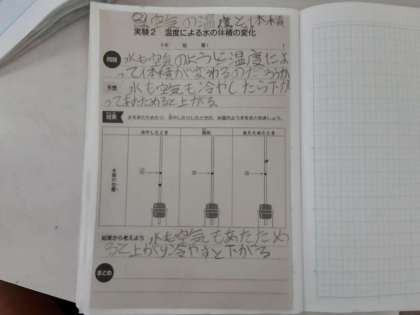 ② 空気の温度と体積
実験2 温度による水の体積の変化
年 組
問題 水も空気のように温度によ
って体積が変わるのだろうか
予想 水も空気も冷やしたら下が
ってあたためると上がる
結果
冷やしたとき あたためたとき
水面の位置
結果から考えよう 水も空気もあたため
ると上がり冷やすと下がる
まとめ